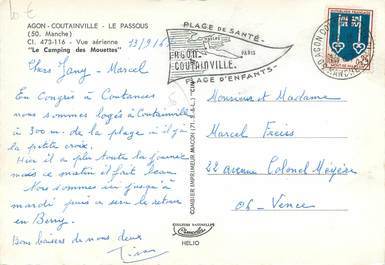 10 E
AGON-COUTAINVILLE - LE PASSOUS
(50. Manche)
Cl. 473-116 - Vue aérienne
"Le Camping des Mouettes"
13/9/6
Chers Jany - Marcel
En Congrès à Coutances
nous sommes logés à Coutainville
à 300 m. de la plage à il y a
la petite croix.
Hier il a plu toute la journée
mais ce matin il fait beau.
Nous sommes ici jusqu'à
mardi puis ce sera le retour
en Berry.
Bons baisers de nous deux
PLAGE DE SANTÉ
PARIS
AGON-
COUTAINVILLE.
PLAGE D'ENFANTS
COMBIER IMPRIMEUR MACON (71 S.-&-L.)
HELIO
0,25
Monsieur et Madame
Marcel
22 avenue Colonel
06 - Vence